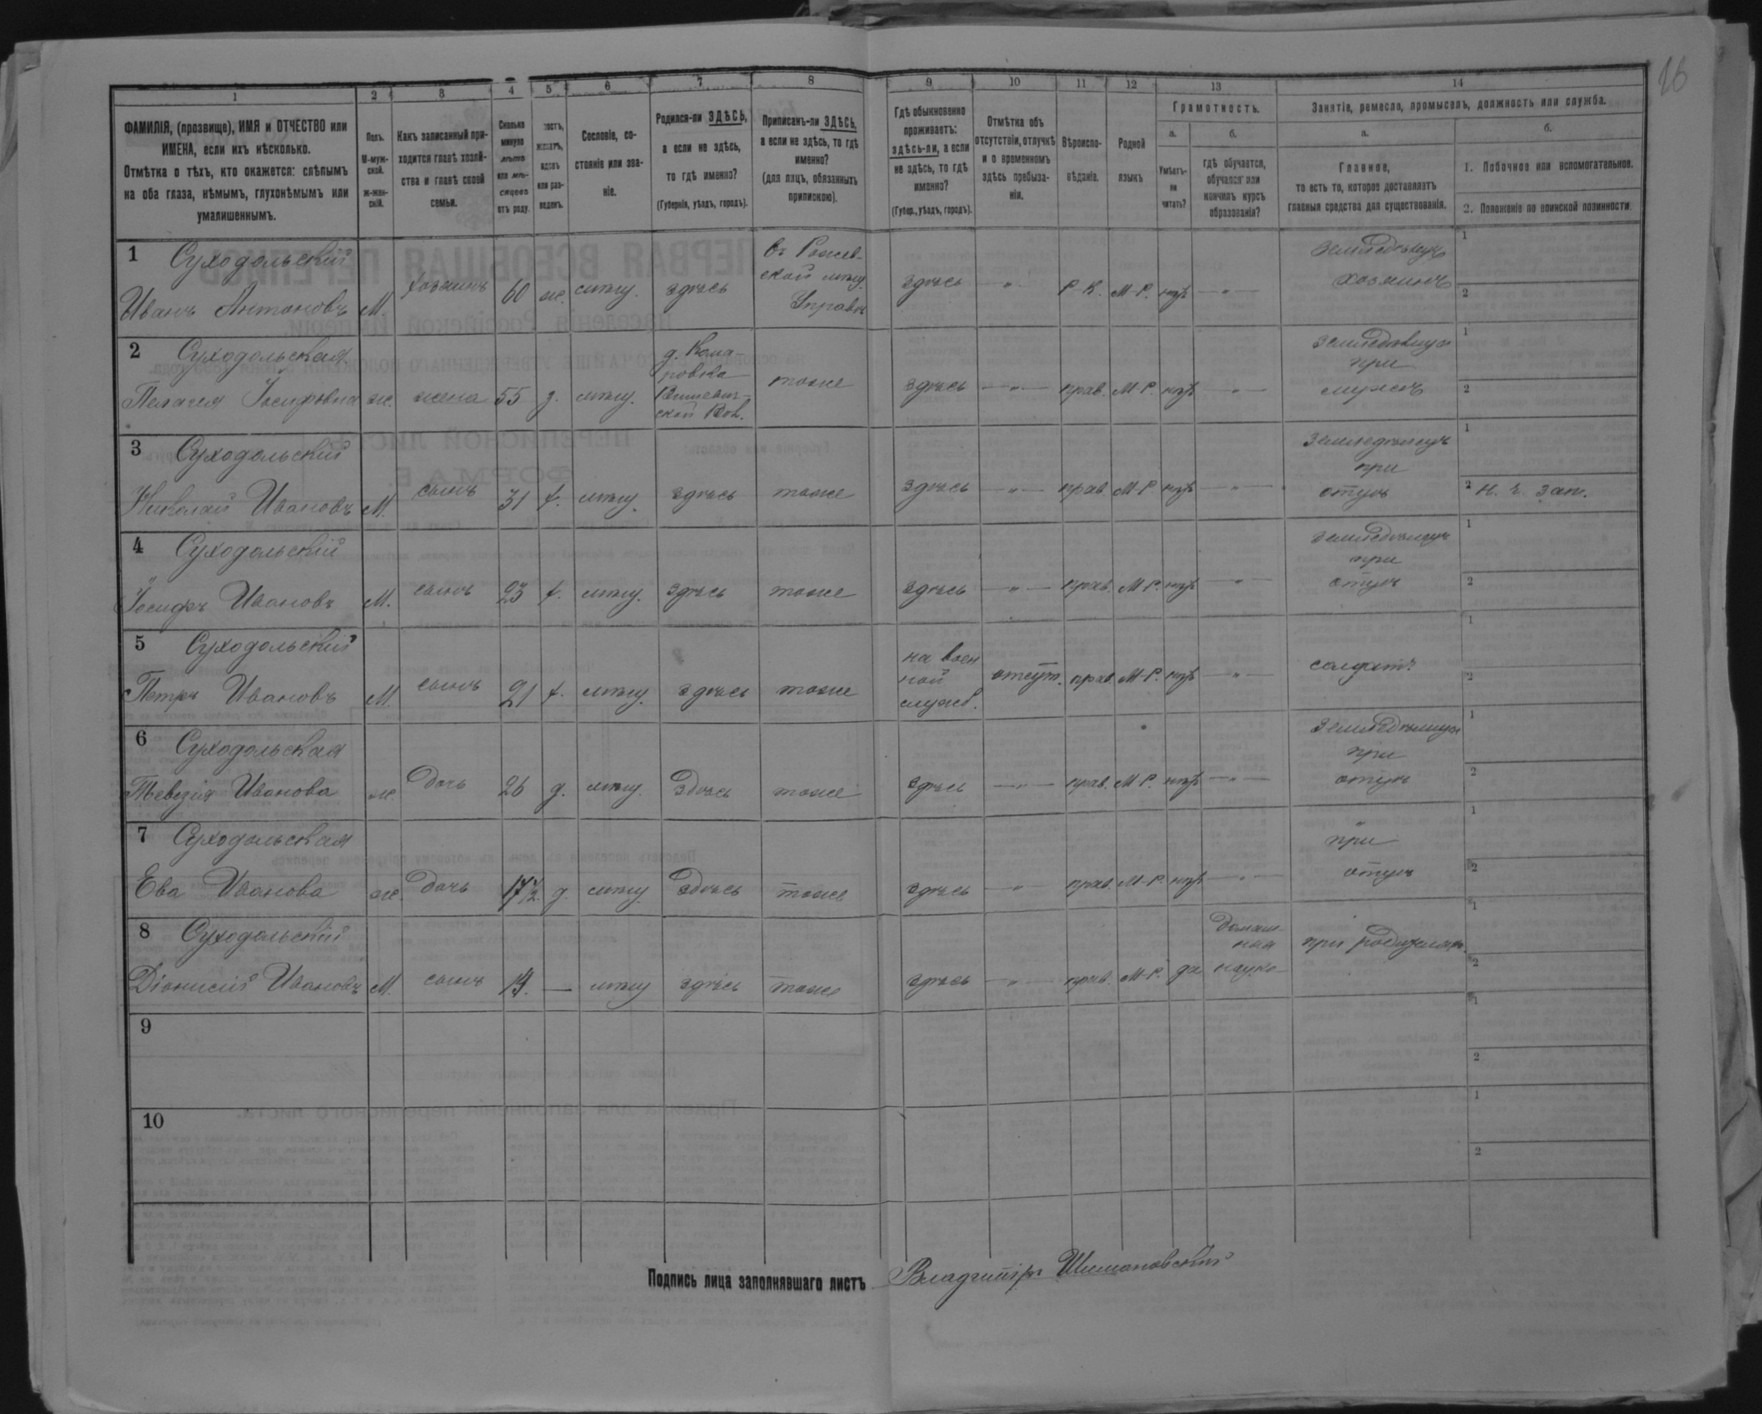 16
1 2 3 4 5 6 7 8 9 10 11 12 13 14
ФАМИЛІЯ, (прозвище), ИМЯ и ОТЧЕСТВО или
ИМЕНА, если ихъ нѣсколько.
Отмѣтка о тѣхъ, кто окажется: слѣпымъ
на оба глаза, нѣмымъ, глухонѣмымъ или
умалишеннымъ.
Полъ.
М-муж-
ской.
Ж-жен-
скій.
Какъ записанный при-
ходится главѣ хозяй-
ства и главѣ своей
семьи.
Сколько
минуло
лѣтъ
или мѣ-
сяцевъ
отъ роду.
холостъ,
женатъ,
вдовъ
или раз-
веденъ.
Сословіе, со-
стояніе или зва-
ніе.
Родился-ли ЗДѢСЬ,
а если не здѣсь,
то гдѣ именно?
(Губернія, уѣздъ, городъ).
Приписанъ-ли ЗДѢСЬ,
а если не здѣсь, то гдѣ
именно?
(для лицъ, обязанныхъ
припискою).
Гдѣ обыкновенно
проживаетъ:
здѣсь-ли, а если
не здѣсь, то гдѣ
именно?
(Губер., уѣздъ, городъ).
Отмѣтка объ
отсутствіи, отлучкѣ
и о временномъ
здѣсь пребыва-
ніи.
Вѣроиспо-
вѣданіе.
Родной
языкъ
Грамотность.
а.
Умѣетъ-
ли
читать?
б.
гдѣ обучается,
обучался или
кончилъ курсъ
образованія?
Занятіе, ремесло, промыселъ, должность или служба.
а.
Главное,
то есть то, которое доставляетъ
главныя средства для существованія.
б.
1. Побочное или вспомогательное.
2. Положеніе по воинской повинности.
1 Суходольскій
Иванъ Антоновъ М. хозяинъ 60 ж. мѣщ. здѣсь
здѣсь „ Р-К. М-Р. нѣтъ „
хозяинъ
1
2
2 Суходольская
Пелагея Іосифовна ж. жена 55 з. мѣщ.
тоже здѣсь „ прав. М-Р. нѣтъ „
при
мужѣ
1
2
3 Суходольскій
Николай Ивановъ М. сынъ 31 х. мѣщ. здѣсь тоже здѣсь „ прав. М-Р. нѣтъ „
при
отцѣ
1
2
4 Суходольскій
Іосифъ Ивановъ М. сынъ 23 х. мѣщ. здѣсь тоже здѣсь „ прав. М-Р. нѣтъ „
при
отцѣ
1
2
5 Суходольскій
Петръ Ивановъ М. сынъ 21 х. мѣщ. здѣсь тоже
на воен
ной
служб.
отсут. прав. М-Р. нѣтъ „ солдатъ
1
2
6 Суходольская
Ивонова ж. дочь 26 д. мѣщ. здѣсь тоже здѣсь „ прав. М-Р. нѣтъ „
при
отцѣ
1
2
7 Суходольская
Ева Иванова ж. дочь д. мѣщ. здѣсь тоже здѣсь „ прав. М-Р. нѣтъ „
при
отцѣ
1
2
8 Суходольскій
Діонисій Ивановъ М. сынъ 14. — мѣщ. здѣсь тоже здѣсь „ прав. М-Р. да
при
1
2
9
1
2
10
1
2
Подпись лица заполнявшаго листъ Владиміръ Шимановскій